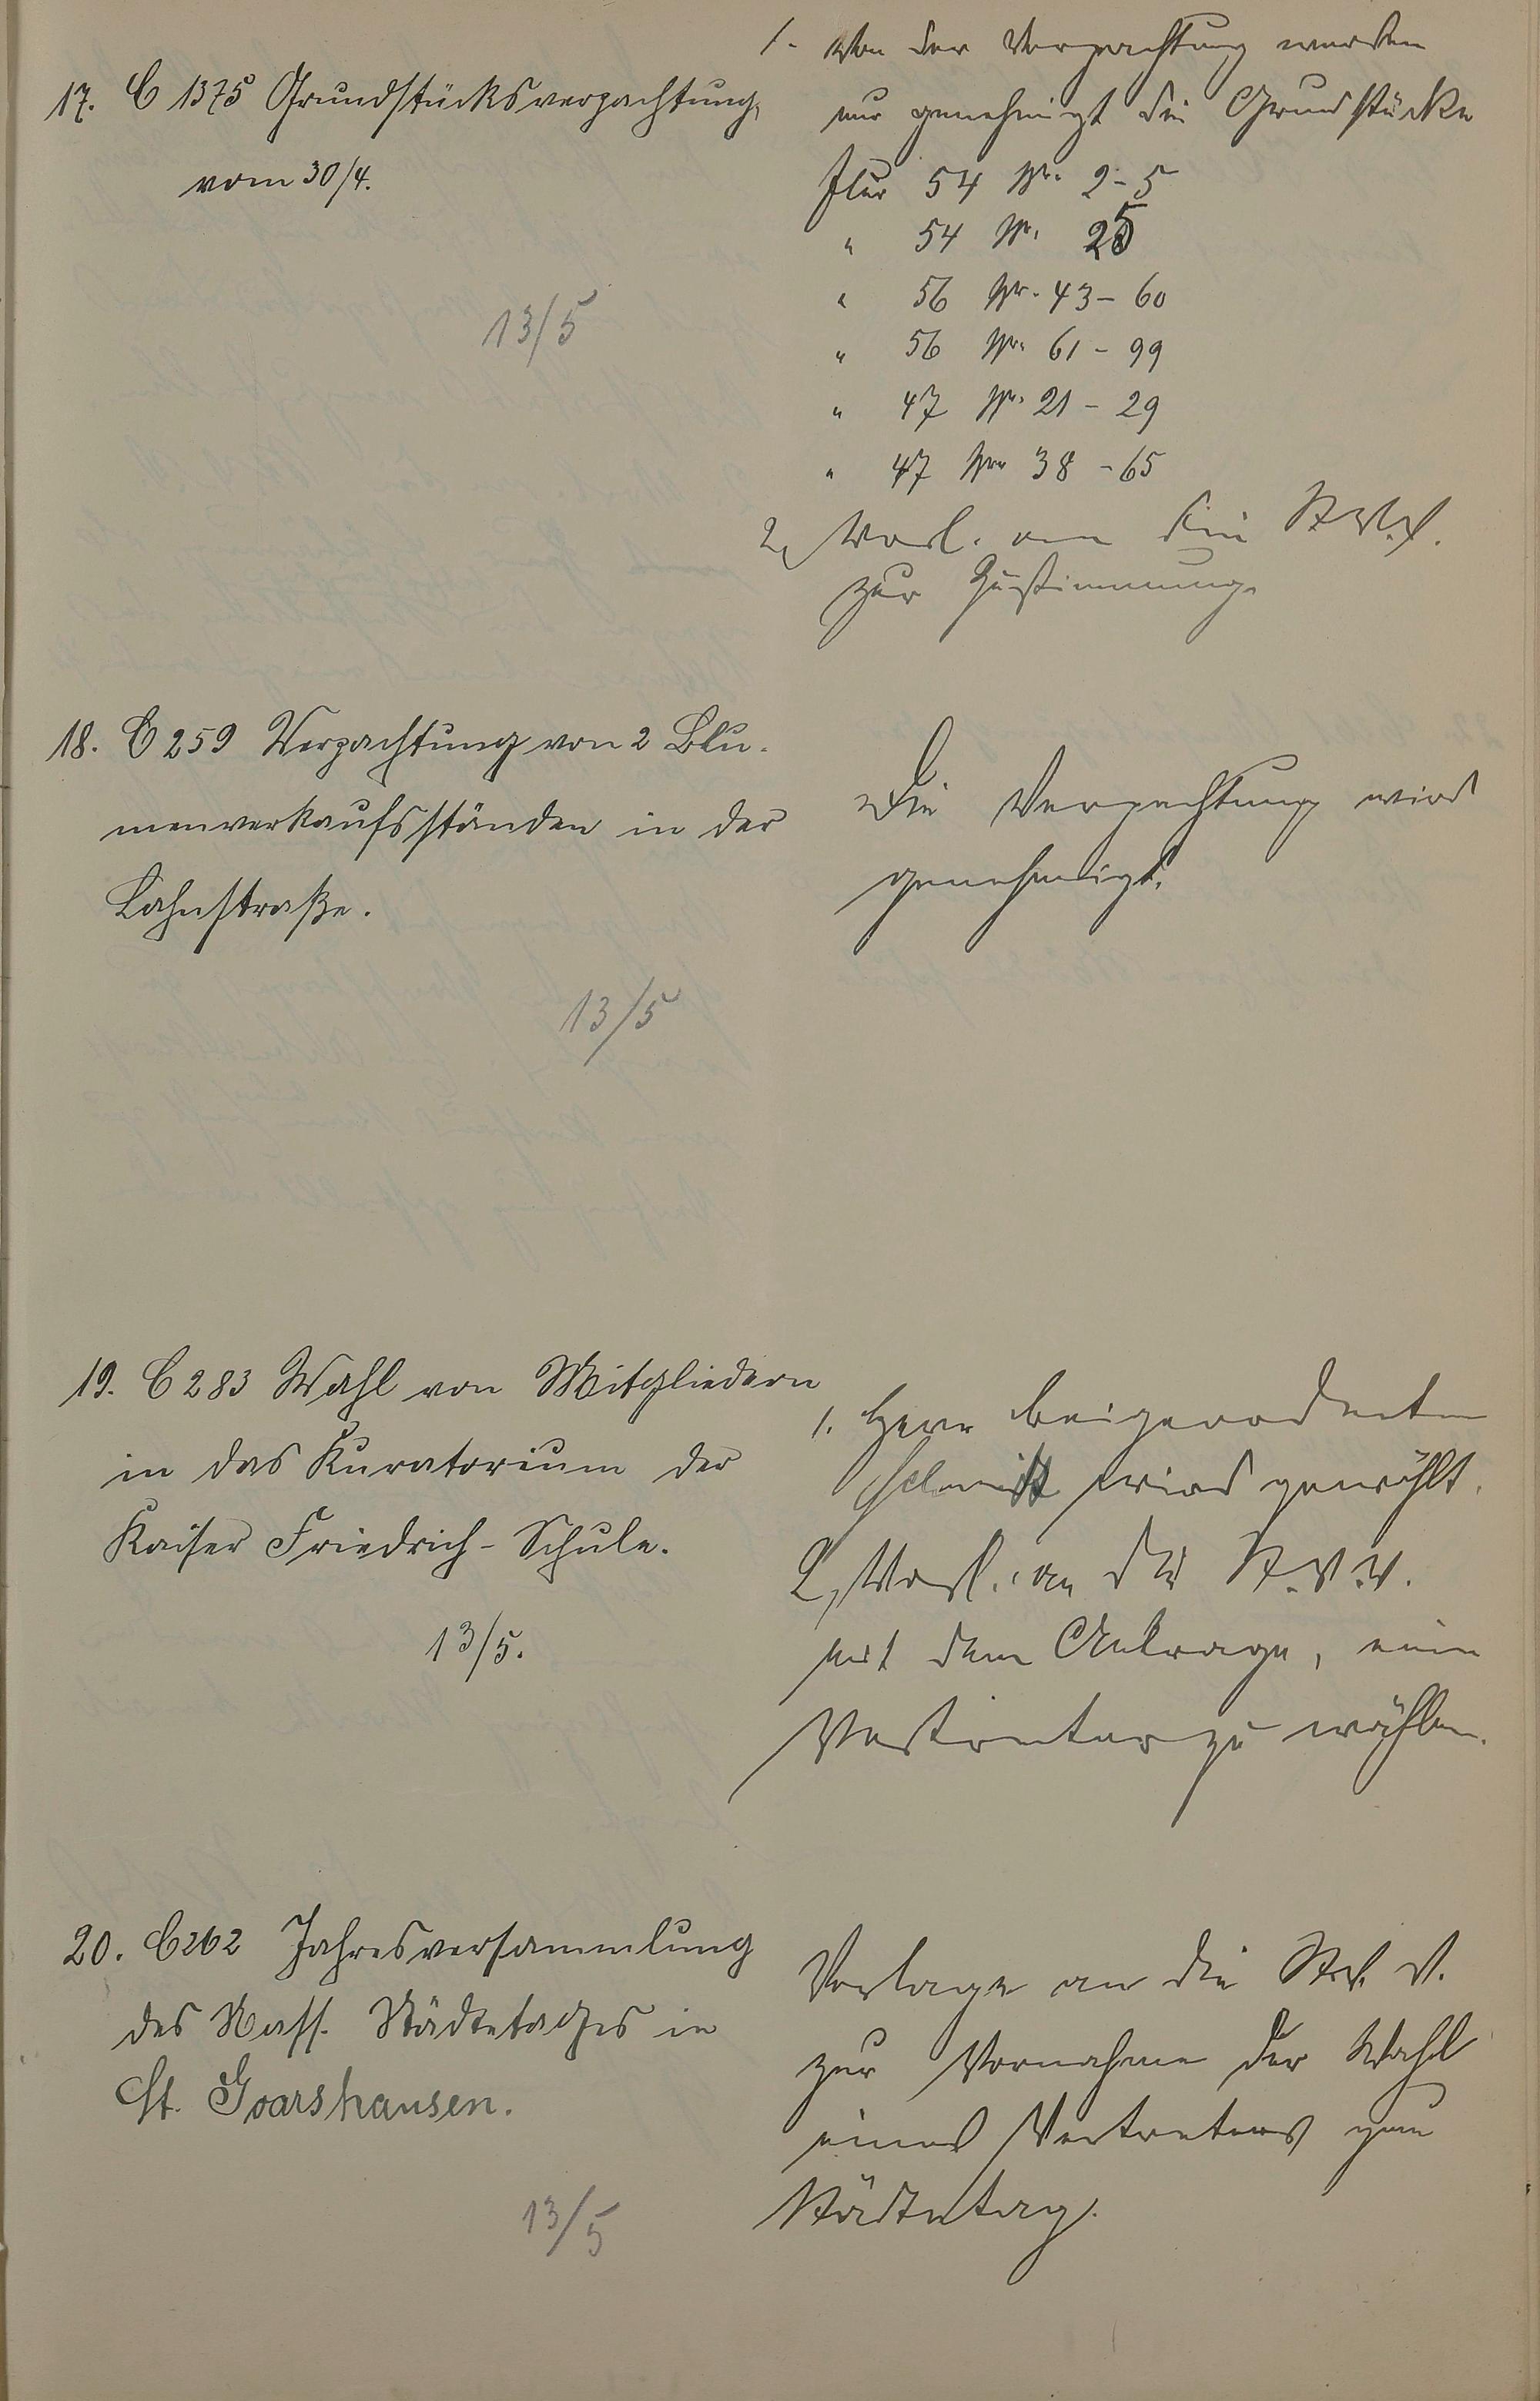 17. C 1375 Grundstücksverpachtung,
vom 30/4.
13/5
1. Von der Verpachtung werden
nur genehmigt die Grundstücke
Flur 54 Nr. 2-5
" 54 Nr. 25
" 56 Nr. 43-60
" 56 Nr. 61-99
" 47 Nr. 21-29
" 47 Nr. 38-65
2, Vorl. an die St.V.V.
zur Zustimmung.
18. C 259 Verpachtung von 2 Blu-
menverkaufsständen in der
Lahnstraße.
13/5
Die Verpachtung wird
genehmigt.
19. C 283 Wahl von Mitgliedern
in das Kuratorium der
Kaiser Friedrich-Schule.
13/5.
1. Herr Beigeordneter
Schmidt wird gewählt.
2, Vorl. an die St.V.V.
mit dem Antrage, einen
Vertreter zu wählen.
20. C 262 Jahresversammlung
des Nass. Städtetages in
St. Goarshausen.
13/5
Vorlage an die St.V.V.
zur Vornahme der Wahl
eines Vertreters zum
Städtetag.